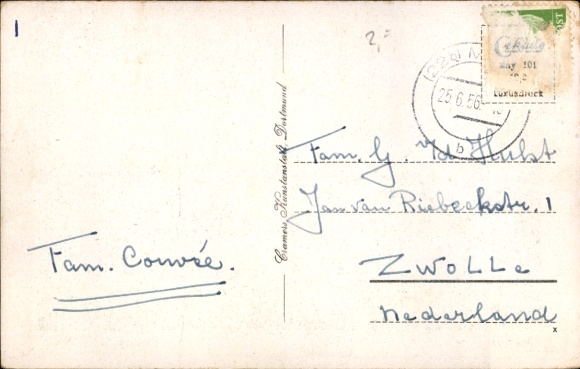 2,=
(22a)
25.6.56
b
Cekade
Way 101
Luxusdruck
Cramers Kunstanstalt, Dortmund
Fam. G. v/d Hulst
Jan van Riebeeckstr. 1
Zwolle
Nederland
Fam. Couvée.
x